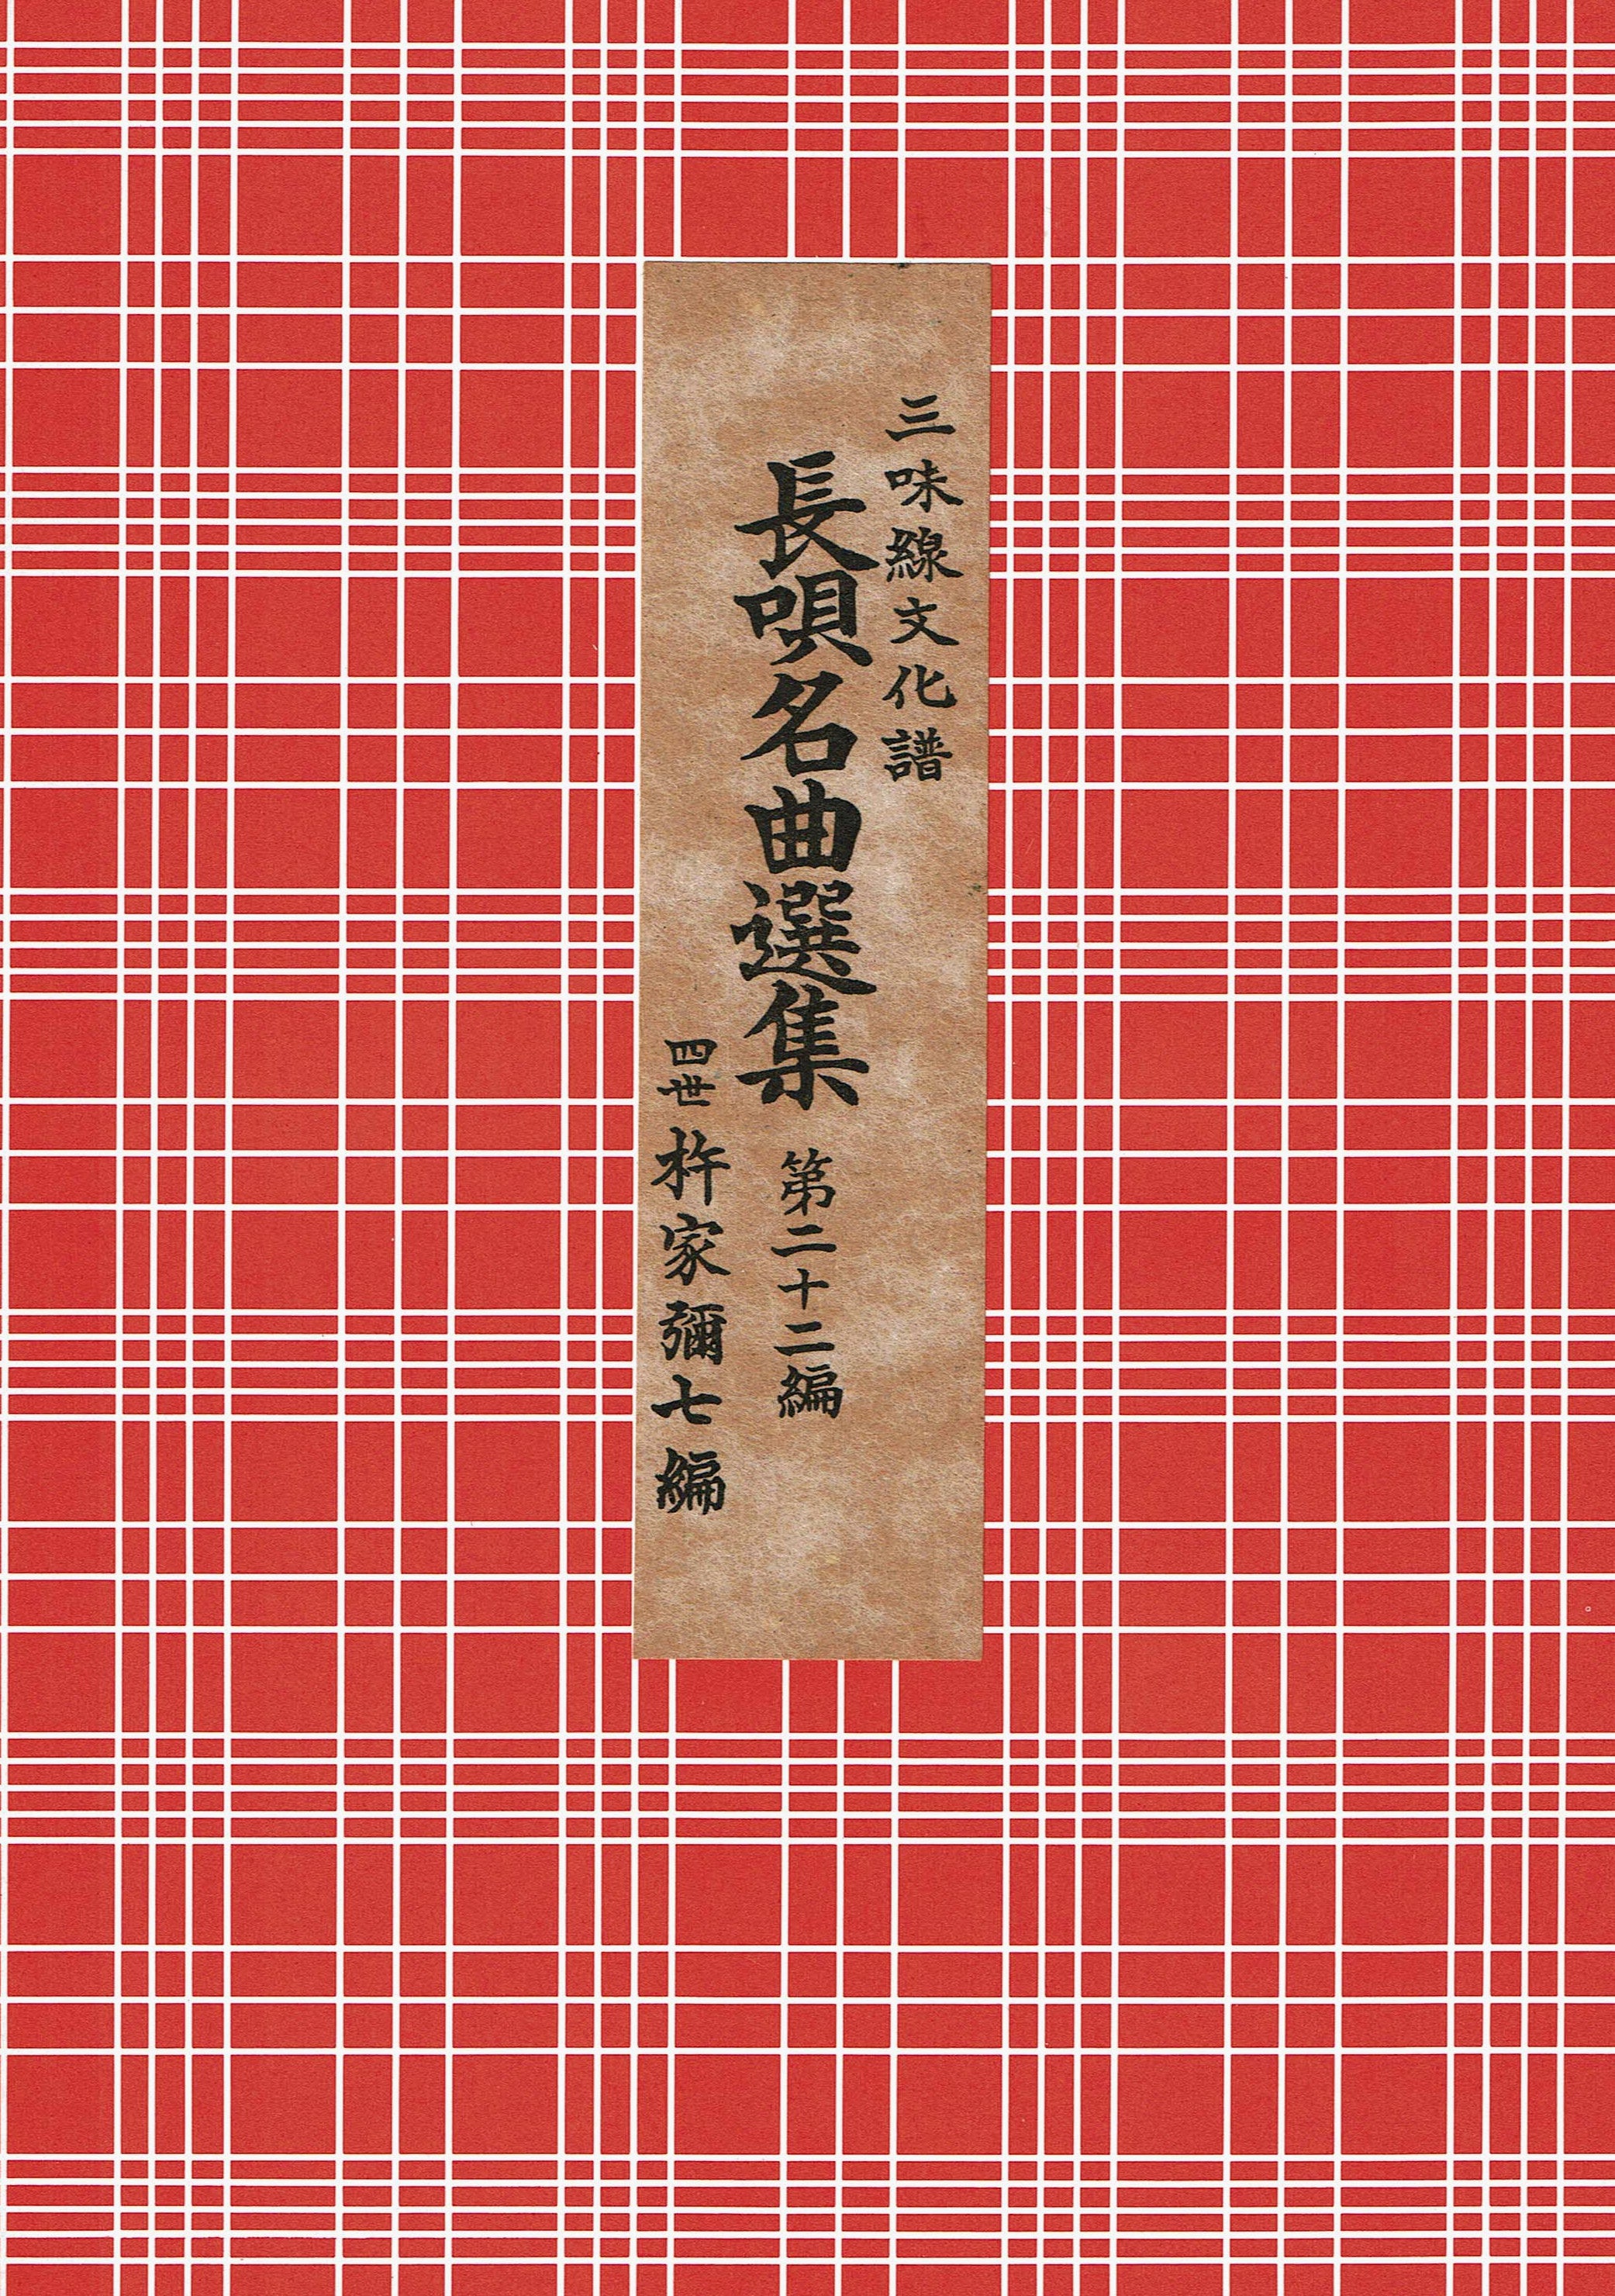 三味線文化譜
長唄名曲選集 第二十二編
四世 杵家彌七編